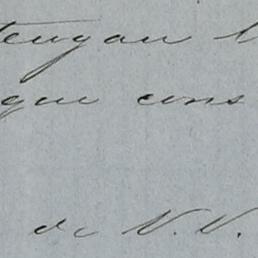 tengan l
que cons
de V. V.